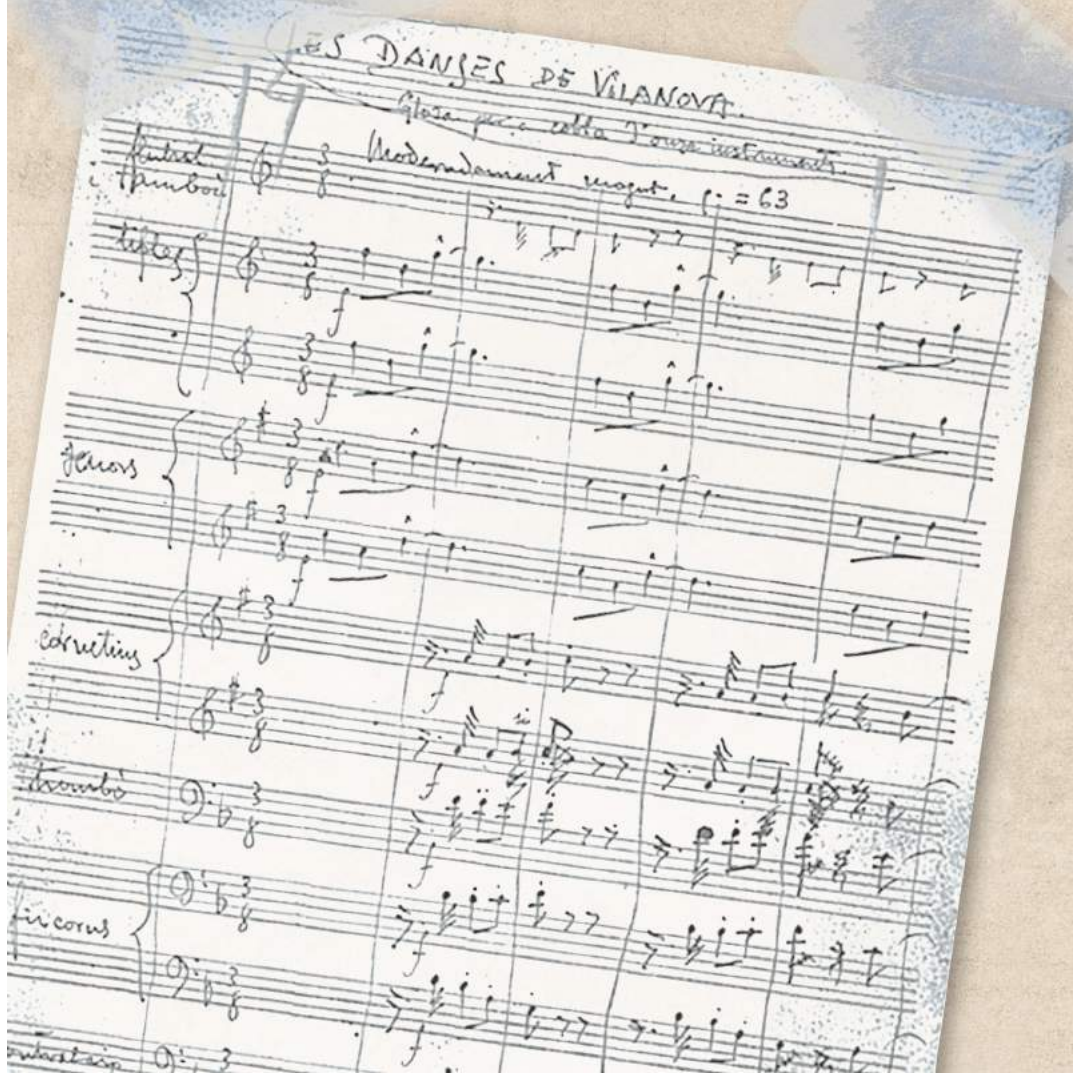 LES DANSES DE VILANOVA.
Glosa per a cobla d'onze instruments.
Moderadament mogut. ♩. = 63
flabiol
i tamborí
tiples
tenors
cornetins
trombó
fiscorns
contrabaix